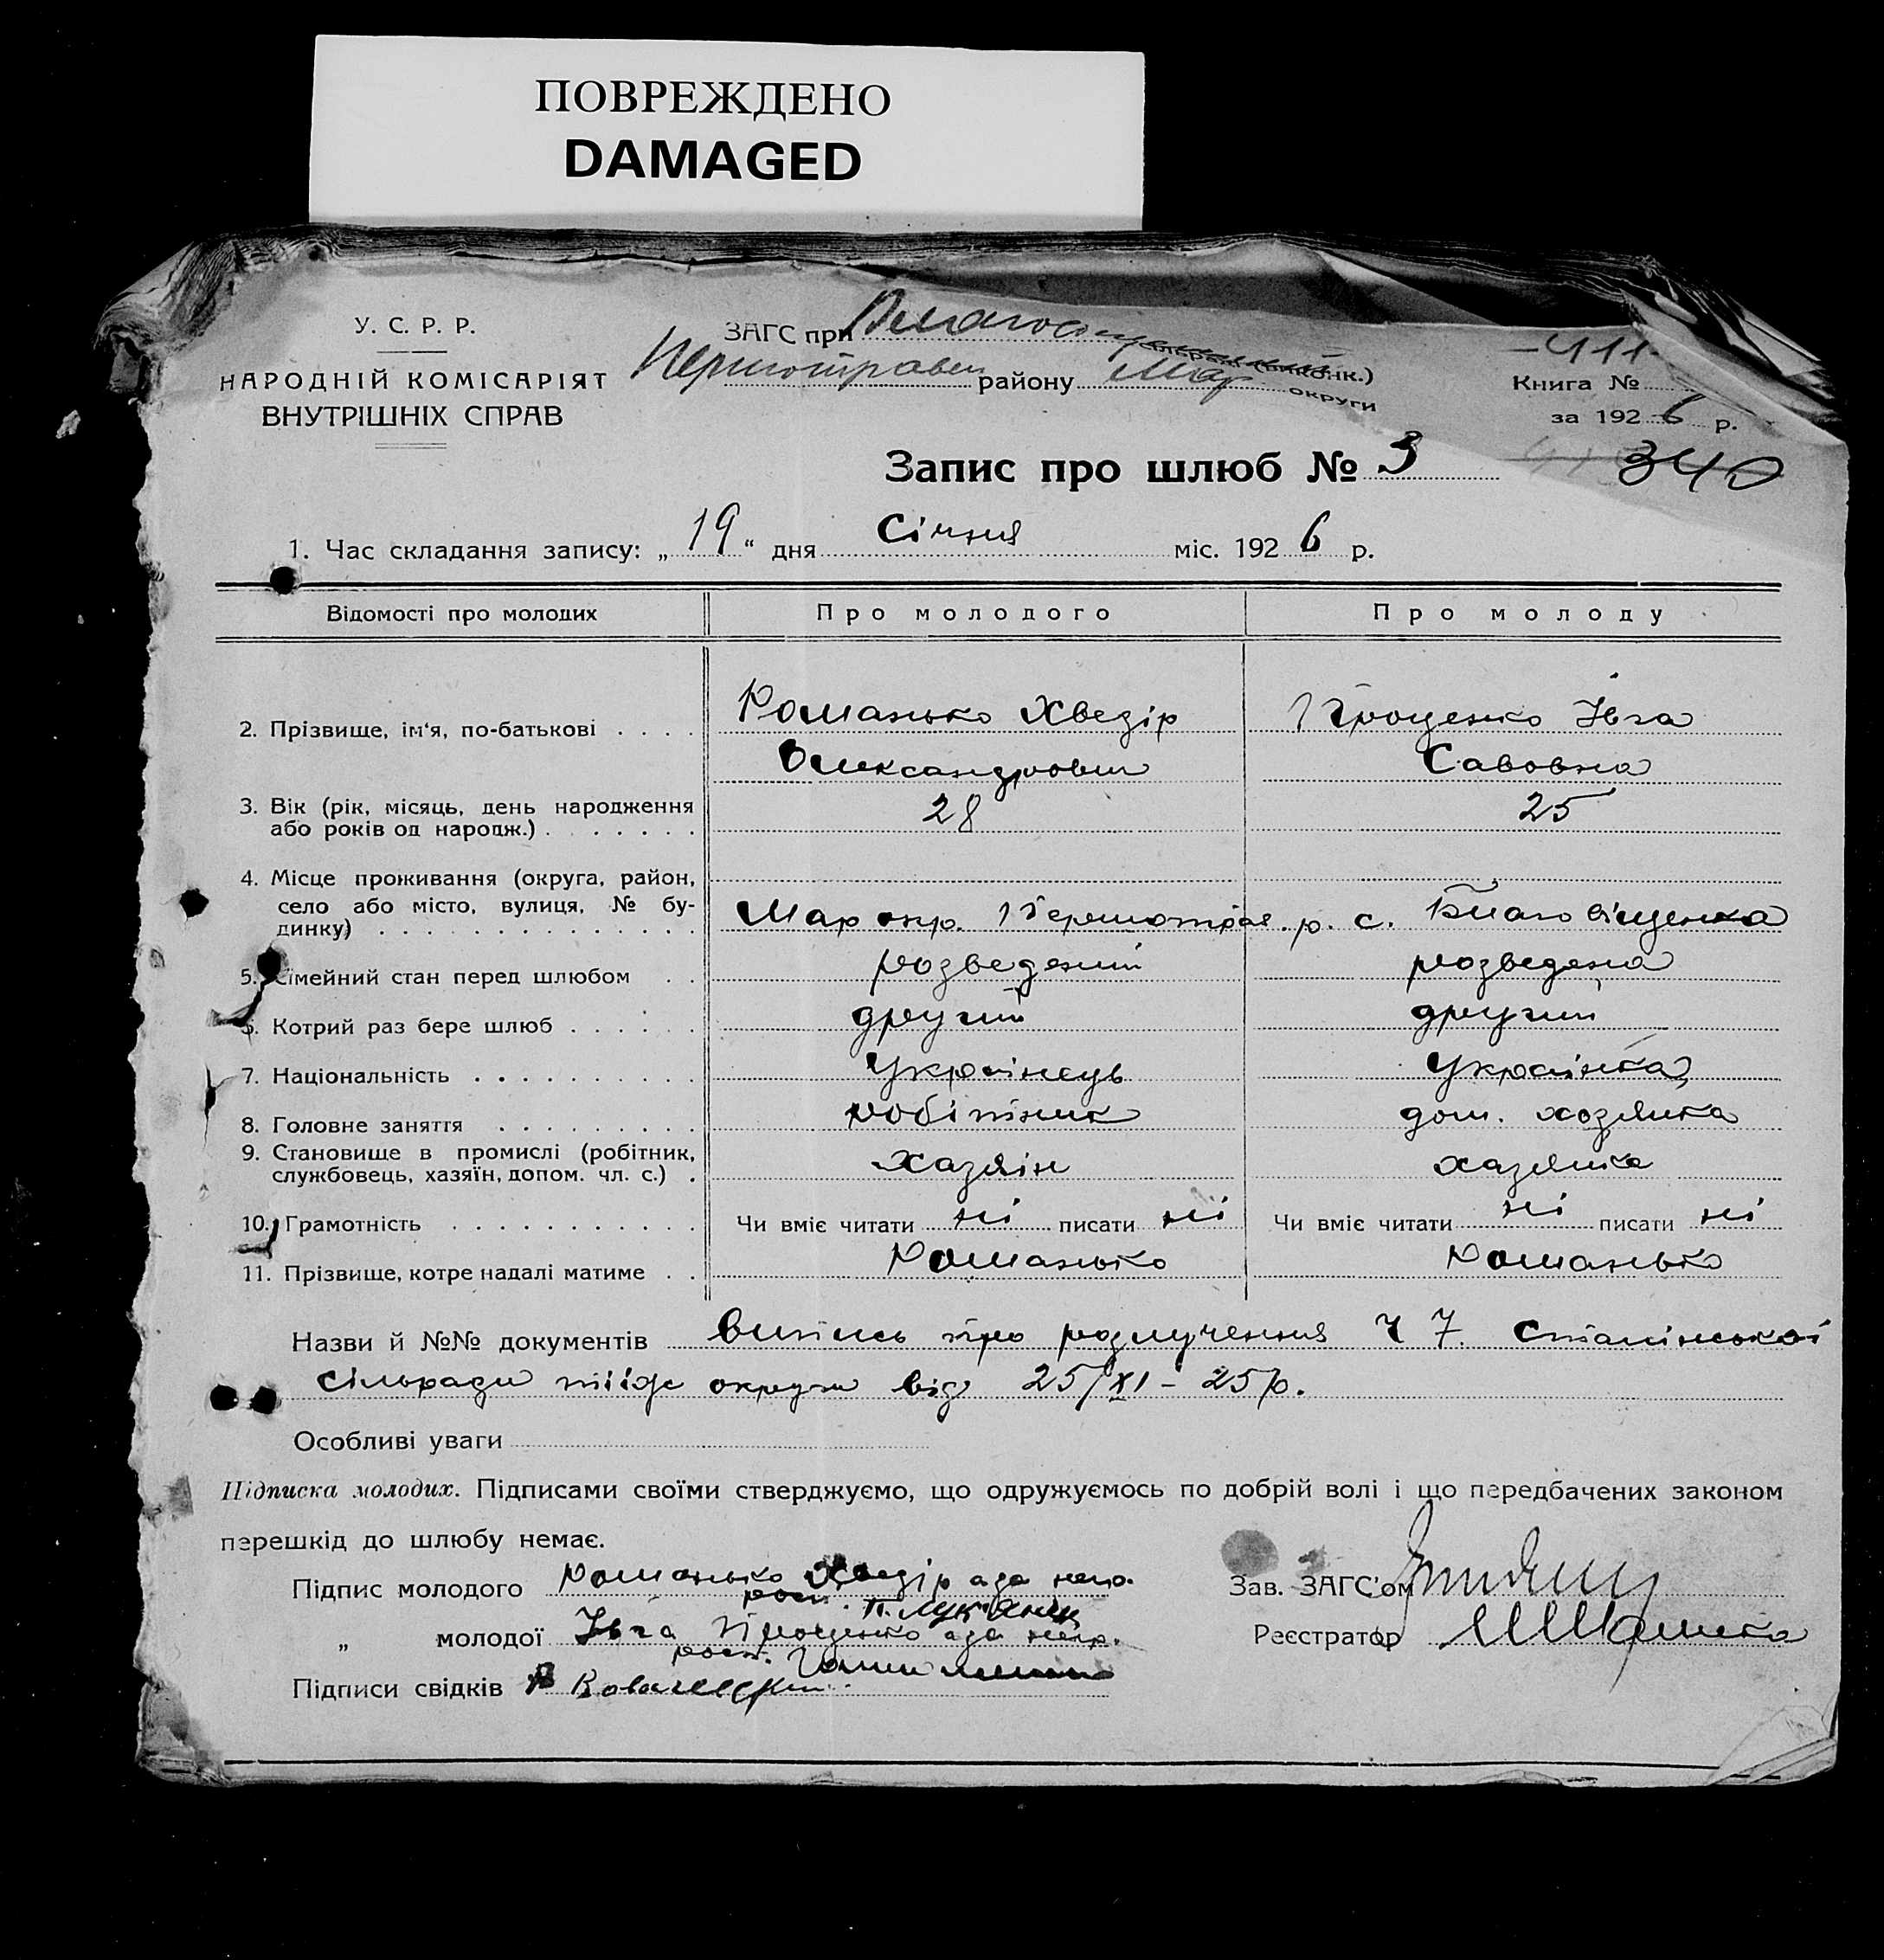 ПОВРЕЖДЕНО
DAMAGED
У. С. Р. Р.
НАРОДНІЙ КОМІСАРІЯТ
ВНУТРІШНІХ СПРАВ
ЗАГС при
району Мар округи
411
Книга №
за 1926 р.
340
Запис про шлюб № 3
1. Час складання запису: „ 19 “ дня Січня міс. 1926 р.
Відомості про молодих Про молодого Про молоду
2. Прізвище, ім‘я, по-батькові . . . . Романько Хведір Проценко Івга
Олександрович Савовна
3. Вік (рік, місяць, день народження 28 25
або років од народж.) . . . . . . .
4. Місце проживання (округа, район,
село або місто, вулиця, № бу- Мар окр. Першотрав. р. с. Благовіщенка
динку) . . . . . . . . . . . . . .
5. Сімейний стан перед шлюбом . . розведений розведена
6. Котрий раз бере шлюб . . . . . . другий другий
7. Національність . . . . . . . . . . Українець Українка
8. Головне заняття . . . . . . . . . робітник дом. хозяйка
9. Становище в промислі (робітник, хазяїн хазяйка
службовець, хазяїн, допом. чл. с.) .
10. Грамотність . . . . . . . . . . . Чи вміє читати ні писати ні Чи вміє читати ні писати ні
11. Прізвище, котре надалі матиме . . Романько Романько
Назви й №№ документів Випись про розлучення Ч 7. Сталінської
сільради округи від 25/XI – 25 р.
Особливі уваги
Підписка молодих. Підписами своїми стверджуємо, що одружуємось по добрій волі і що передбачених законом
перешкід до шлюбу немає.
Підпис молодого Романько Хведір а за непр.
Зав. ЗАГС’ом
рос.
„ молодої Івга Проценко а за непр.
Реєстратор
рос.
Підписи свідків